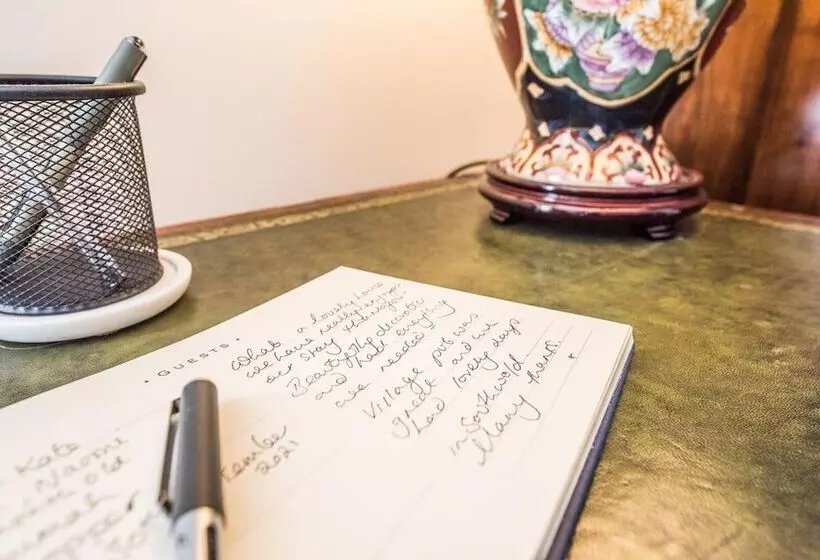 · GUESTS ·
What a lovely house
we have really enjoyed
our stay thank you
Beautifully decorated
and had everything
we needed
Village pub was
great and we
had lovely days
in Southwold
Many thanks
tember
2021
Kate
Naomi
old